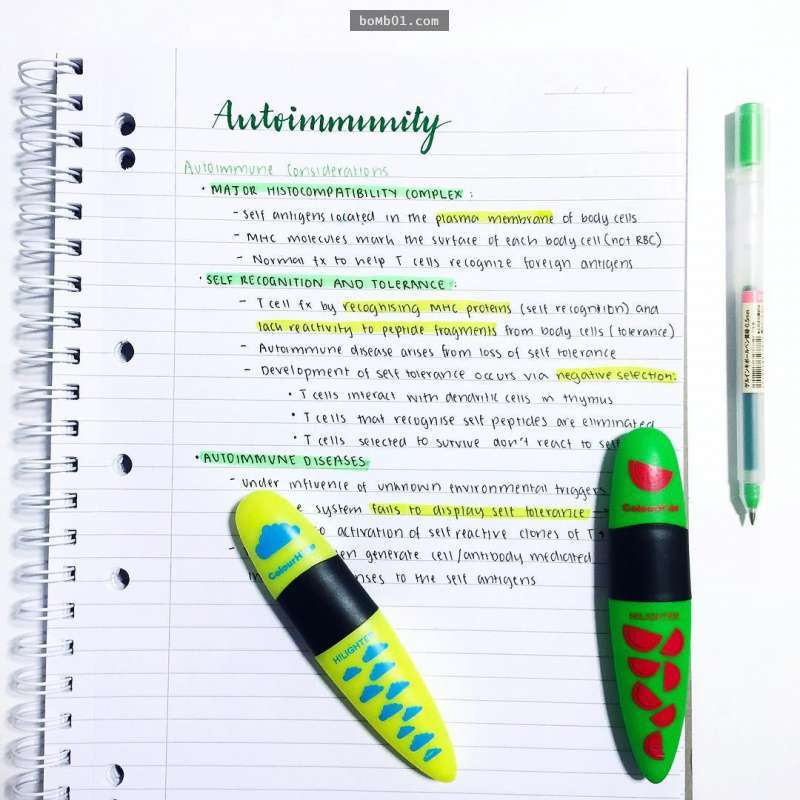 boMb01.com
Autoimmunity
Autoimmune Considerations
• MAJOR HISTOCOMPATIBILITY COMPLEX :
- Self antigens located in the plasma membrane of body cells
- MHC molecules mark the surface of each body cell (not RBC)
- Normal fx to help T cells recognize foreign antigens
• SELF RECOGNITION AND TOLERANCE :
- T cell fx by recognising MHC proteins (self recognition) and
lack reactivity to peptide fragments from body cells (tolerance)
- Autoimmune disease arises from loss of self tolerance
- Development of self tolerance occurs via negative selection:
• T cells interact with dendritic cells in thymus
• T cells that recognise self peptides are eliminated
• T cells selected to survive don't react to
• AUTOIMMUNE DISEASES
- under influence of unknown environmental triggers
system fails to display self tolerance
activation of self reactive clones of T
generate cell/antibody mediated
to the self antigens
ColourHide
HILIGHTER
ColourHide
HILIGHTER
ゲルインキボールペン 0.5mm